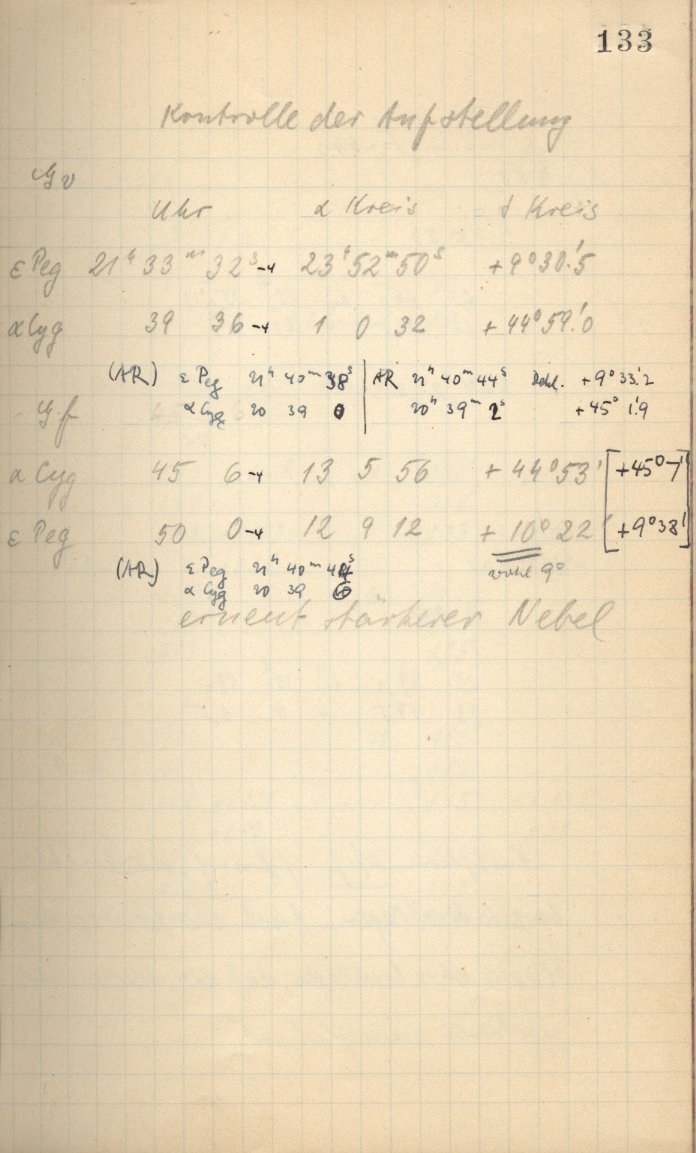 133
Kontrolle der Aufstellung
Gv
Uhr α Kreis δ Kreis
ε Peg 21ʰ 33ᵐ 32ˢ-4 23ʰ 52ᵐ 50ˢ +9° 30.'5
α Cyg 39 36-4 1 0 32 +44° 59.'0
(AR) ε Peg 21ʰ 40ᵐ 38ˢ AR 21ʰ 40ᵐ 44ˢ Dekl. +9° 33.'2
α Cyg 20 39 0 20ʰ 39ᵐ 2ˢ +45° 1.'9
G.f
α Cyg 45 6-4 13 5 56 +44° 53' [+45° 7']
ε Peg 50 0-4 12 9 12 +10° 22' [+9° 38']
(AR) ε Peg 21ʰ 40ᵐ 44ˢ wohl 9°
α Cyg 20 39 6
erneut stärkerer Nebel